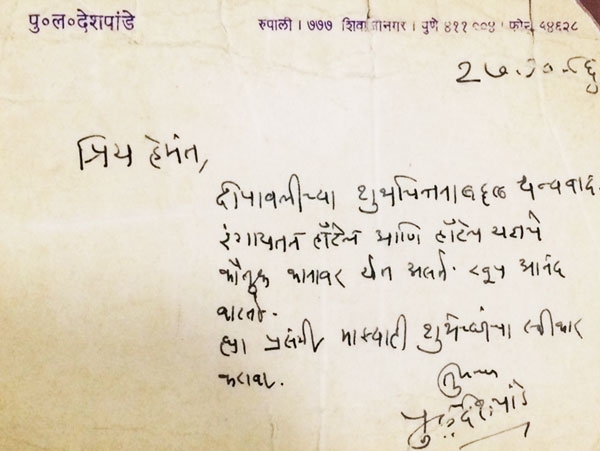 पु०ल०देशपांडे
रुपाली । ७७७ शिवाजीनगर । पुणे ४११ ००४ । फोन ५४६२८
२७.१०.८६
प्रिय हेमंत,
दीपावलीच्या शुभचिंतनाबद्दल धन्यवाद.
रंगायतन हॉटेल आणि हॉटेल यांचे
कौतुक कानावर येत असते. खूप आनंद
वाटतो.
ह्या प्रसंगी माझ्याही शुभेच्छांचा स्वीकार
करावा.
तुमचा
पु.ल.देशपांडे